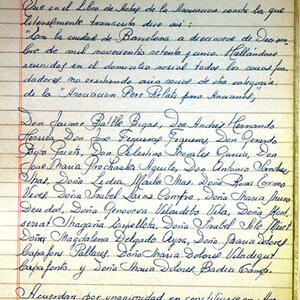 Que en el Libro de Actas de la Asociación consta la que
literalmente transcrita dice así:
"En la ciudad de Barcelona a diecinueve de Diciem-
bre de mil novecientos setenta y cinco. Hallándose
reunidos en el domicilio social todos los socios fun-
dadores no existiendo aún socios de otra categoría,
de la "Asociación Pere Relats pro Ancianos",
Don Jaime Batlle Bigas, Don Andrés Hernando
Hervia, Don José Don Gerardo
Don Celestino Morales García, Don
José María Prochaska Agulto, Don Antonio Sánchez
Mas, Doña Lidia Mas, Doña Rosa Cormo
Vives, Doña Isabel Lains Confre, Doña María
Deudor, Doña Genoveva Vilardebó Vila, Doña Mont-
serrat Magaña Doña Isabel Micet
Doña Magdalena Delgado Doña María Dolores
Capafons Pallarés, Doña María Dolores Viladegut
Capafonts, y Doña María Dolores Badía Camp.
Acuerdan por unanimidad en constituirse en